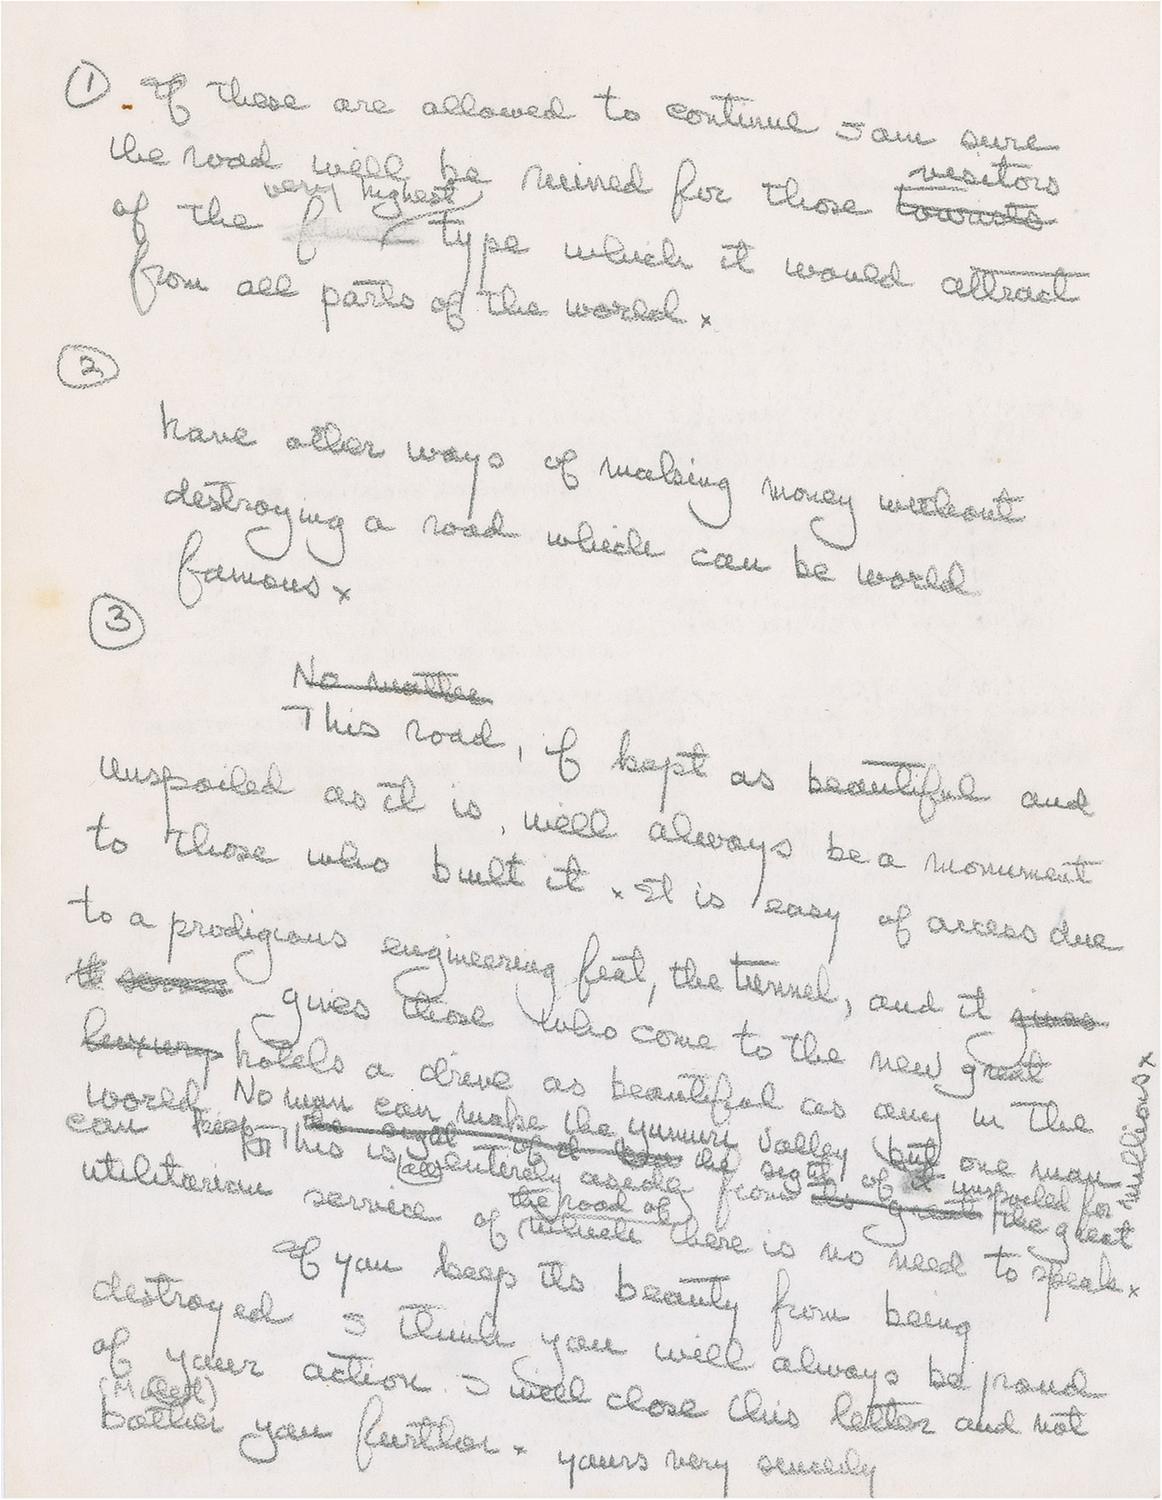 1. If these are allowed to continue I am sure
the road will be ruined for those tourists visitors
of the very highest type which it would attract
from all parts of the world x
2
have other ways of making money without
destroying a road which can be world
famous x
3
No matter
This road, if kept as beautiful and
unspoiled as it is, will always be a monument
to those who built it x It is easy of access due
to a prodigious engineering feat, the tunnel, and it gives
gives those who come to the new great
luxury hotels a drive as beautiful as any in the
world. No man can make the yumuri valley but one man
can keep the sight of it the sight of it unspoiled for millions x
This is all entirely aside from the great the great
utilitarian service of the road of which there is no need to speak x
If you keep its beauty from being
destroyed I think you will always be proud
of your action. I will close this letter and not
bother (Molest) you further x yours very sincerely